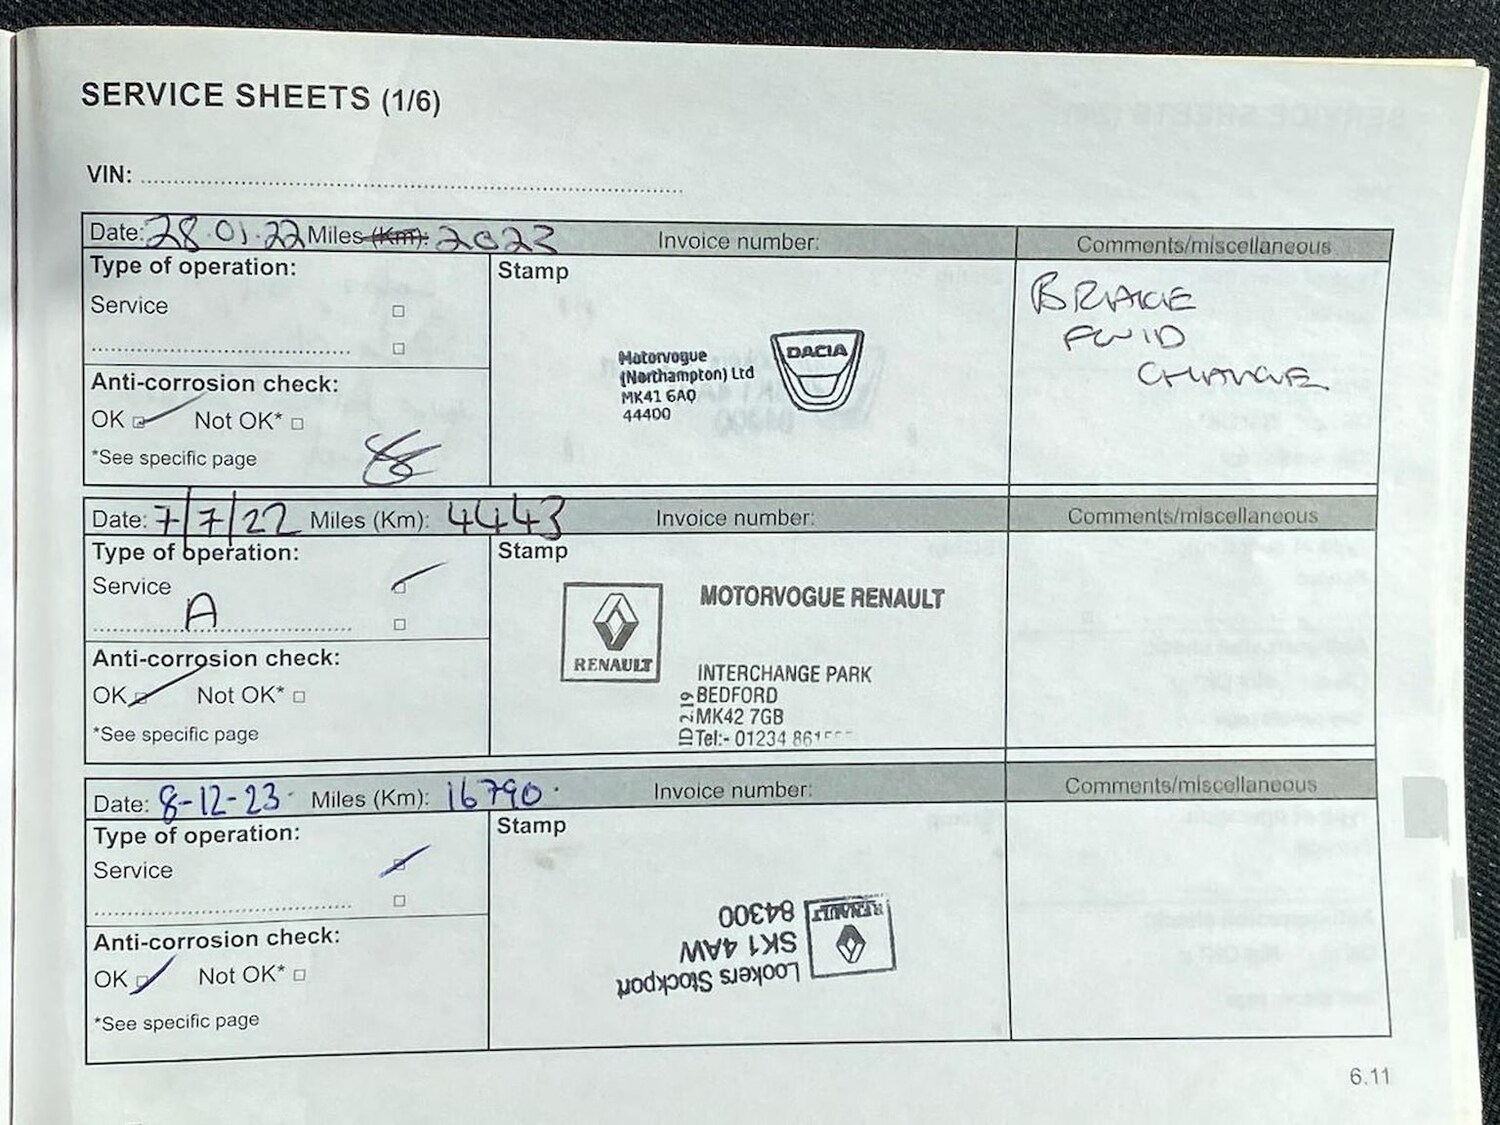 SERVICE SHEETS (1/6)
VIN:
Date: 28.01.22 Miles (Km): 2023 Invoice number: Comments/miscellaneous
Type of operation:
Service
Stamp
Motorvogue
(Northampton) Ltd
MK41 6AQ
44400
DACIA
BRAKE
FLUID
CHANGE
Anti-corrosion check:
OK Not OK*
*See specific page
Date: 7/7/22 Miles (Km): 4443 Invoice number: Comments/miscellaneous
Type of operation:
Service
A
Stamp
RENAULT
MOTORVOGUE RENAULT
INTERCHANGE PARK
BEDFORD
MK42 7GB
Tel:- 01234
Anti-corrosion check:
OK Not OK*
*See specific page
Date: 8-12-23 Miles (Km): 16790 Invoice number: Comments/miscellaneous
Type of operation:
Service
Stamp
Lookers Stockport
SK1 4AW
84300
RENAULT
Anti-corrosion check:
OK Not OK*
*See specific page
6.11